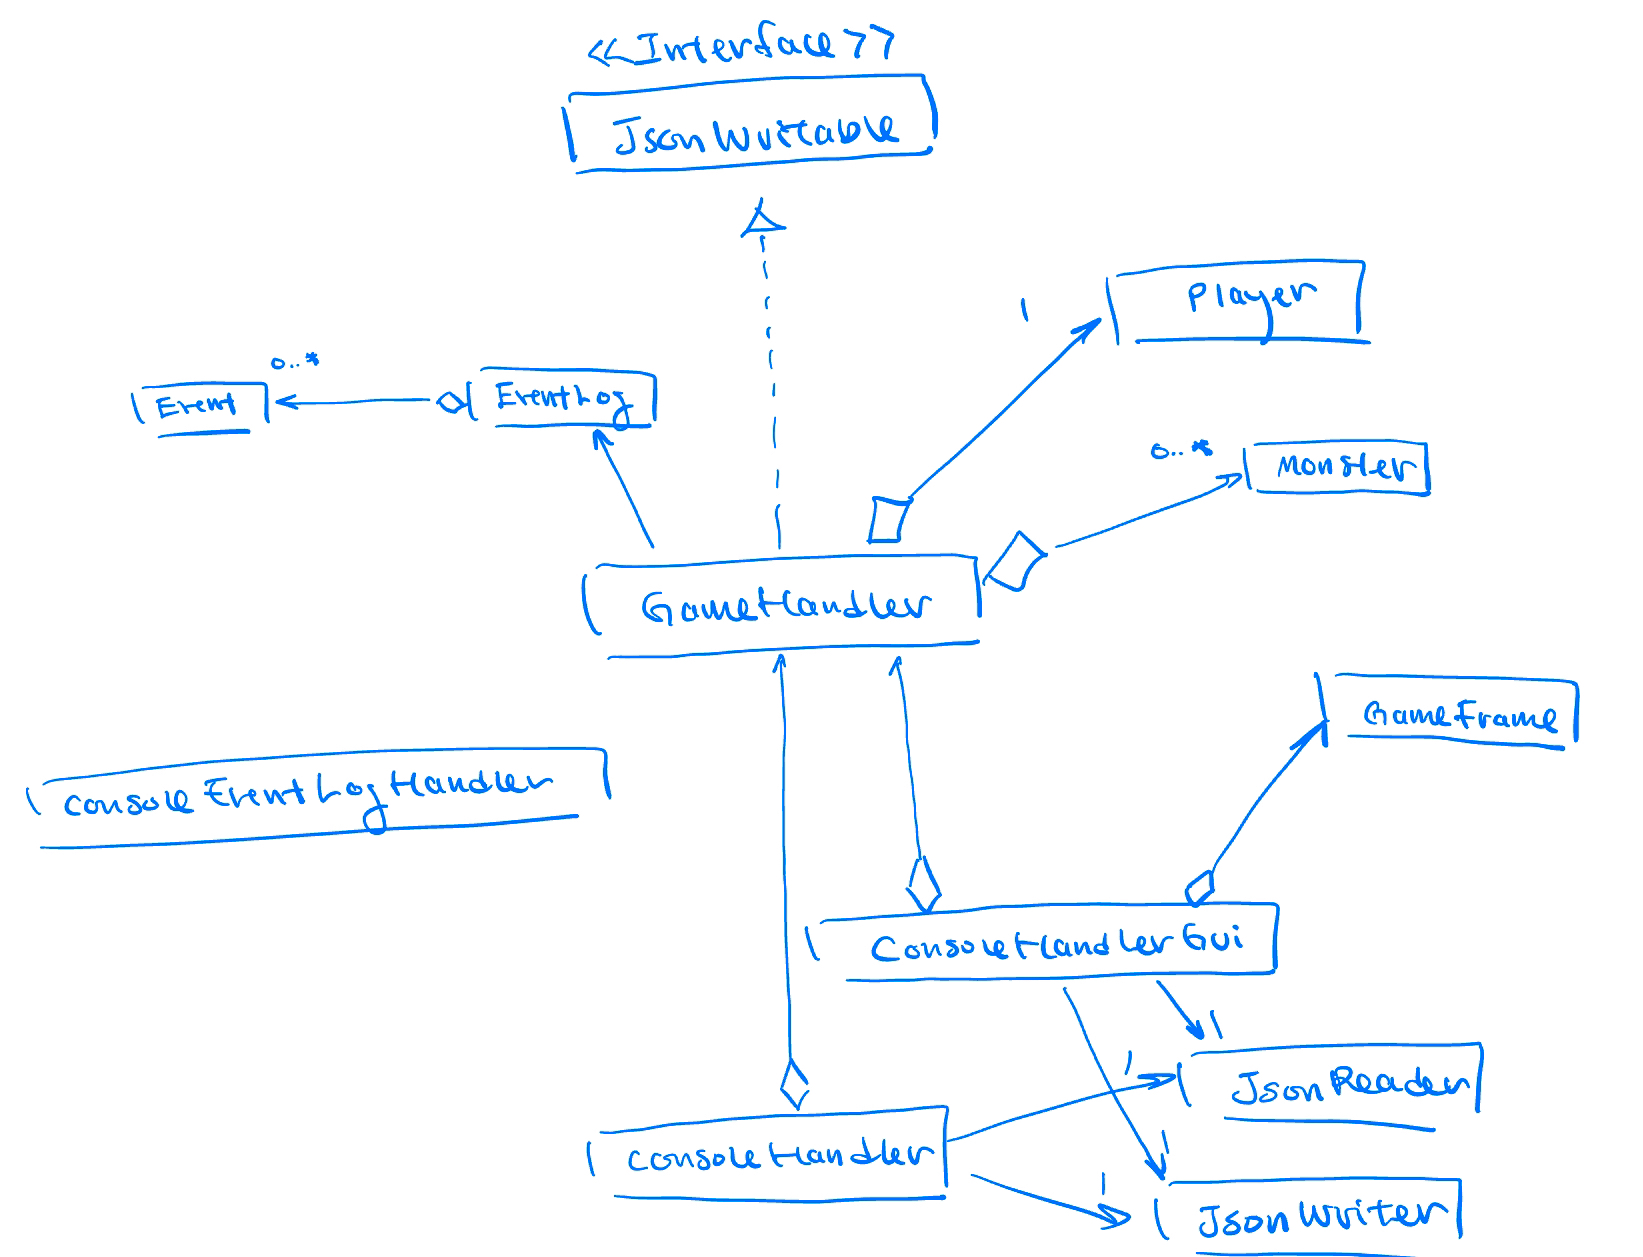 <<Interface>>
JsonWritable
Player
1
0..*
Event
EventLog
0..*
Monster
GameHandler
GameFrame
consoleEventLogHandler
ConsoleHandlerGui
1
1
JsonReader
consoleHandler
1
1
JsonWriter